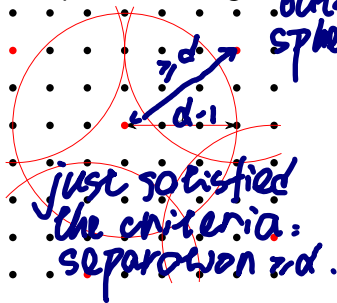 sphe
≥d
d-1
just satisfied
the criteria:
separation ≥d.